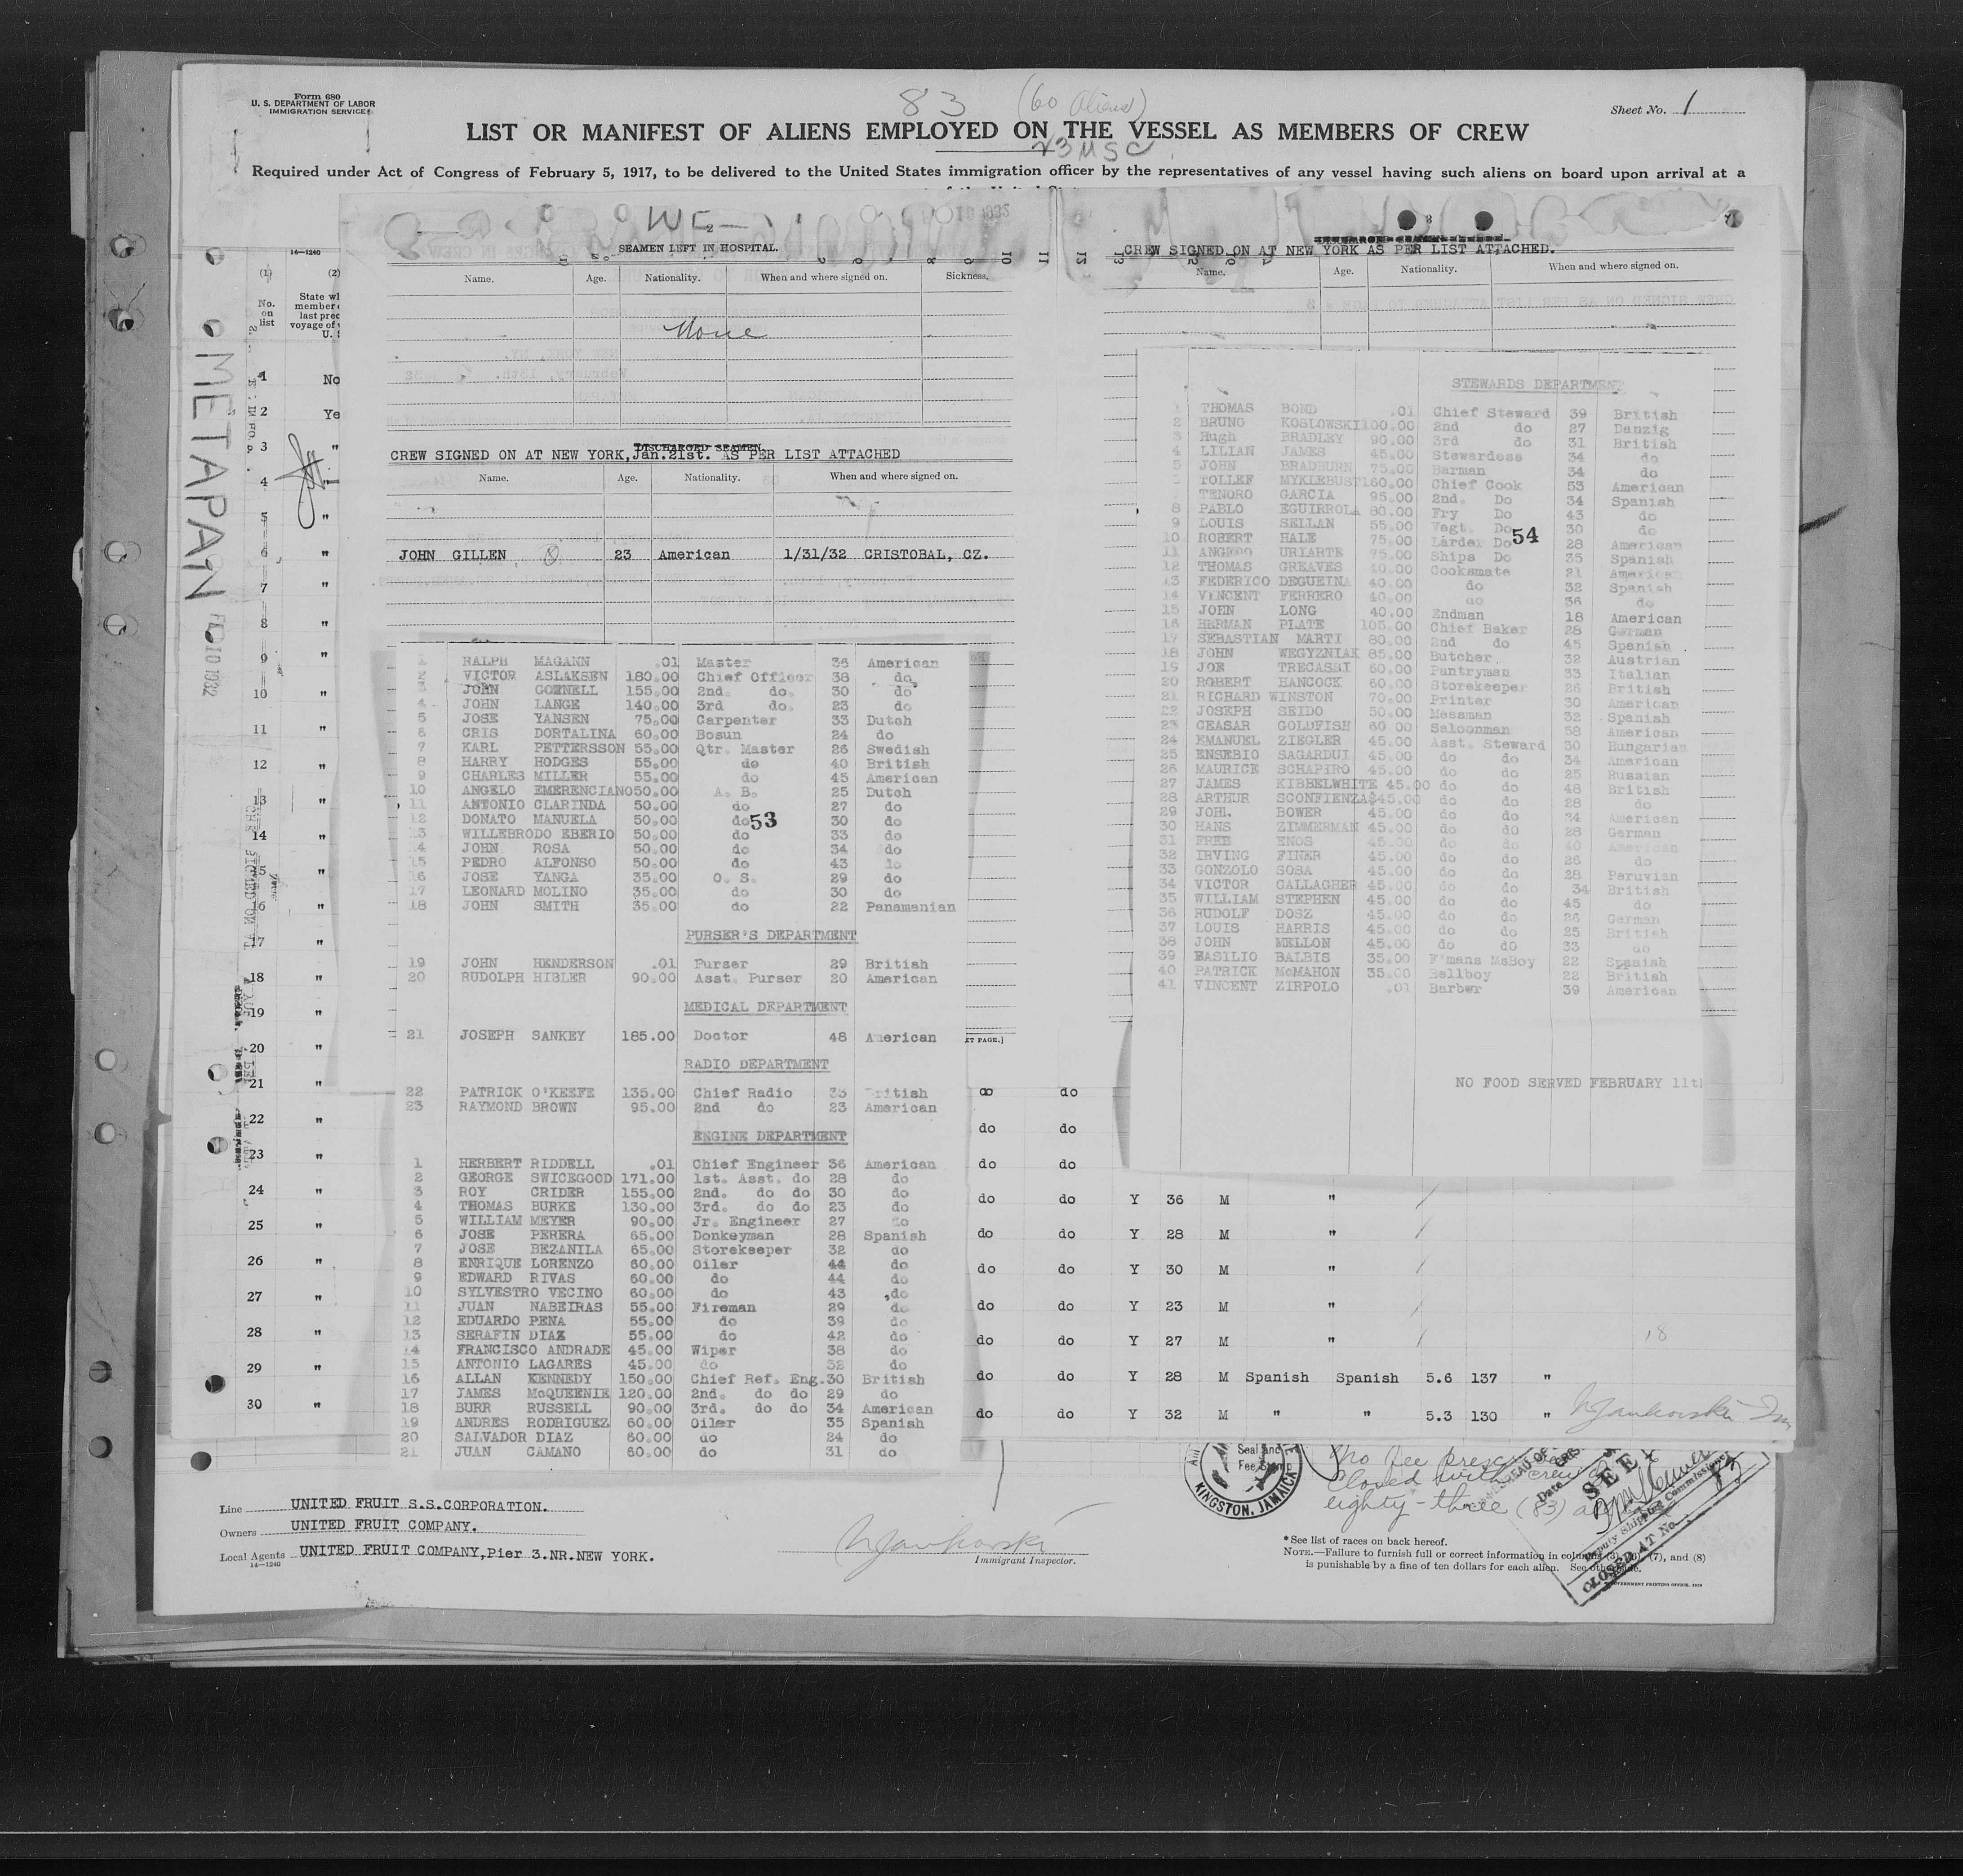 Form 680
U. S. DEPARTMENT OF LABOR
IMMIGRATION SERVICE
83 (60 Aliens)
Sheet No. 1
LIST OR MANIFEST OF ALIENS EMPLOYED ON THE VESSEL AS MEMBERS OF CREW
Required under Act of Congress of February 5, 1917, to be delivered to the United States immigration officer by the representatives of any vessel having such aliens on board upon arrival at a
METAPAN
14—1240
(1) (2)
No. on list
2
SEAMEN LEFT IN HOSPITAL.
Name. Age. Nationality. When and where signed on. Sickness.
None
DISCHARGED SEAMEN.
CREW SIGNED ON AT NEW YORK, Jan. 21st. AS PER LIST ATTACHED
Name. Age. Nationality. When and where signed on.
JOHN GILLEN 23 American 1/31/32 CRISTOBAL, CZ.
1 RALPH MAGANN .01 Master 36 American
2 VICTOR ASLAKSEN 180.00 Chief Officer 38 do
3 JOHN GONNELL 155.00 2nd. do. 30 do
4 JOHN LANGE 140.00 3rd do. 23 do
5 JOSE YANSEN 75.00 Carpenter 33 Dutch
6 CRIS DORTALINA 60.00 Bosun 24 do
7 KARL PETTERSSON 55.00 Qtr. Master 26 Swedish
8 HARRY HODGES 55.00 do 40 British
9 CHARLES MILLER 55.00 do 45 American
10 ANGELO EMERENCIANO 50.00 A. B. 25 Dutch
11 ANTONIO CLARINDA 50.00 do 27 do
12 DONATO MANUELA 50.00 do 30 do
53
13 WILLEBRODO EBERIO 50.00 do 33 do
14 JOHN ROSA 50.00 do 34 do
15 PEDRO ALFONSO 50.00 do 43 do
16 JOSE YANGA 35.00 O. S. 29 do
17 LEONARD MOLINO 35.00 do 30 do
18 JOHN SMITH 35.00 do 22 Panamanian
PURSER'S DEPARTMENT
19 JOHN HENDERSON .01 Purser 29 British
20 RUDOLPH HIBLER 90.00 Asst. Purser 20 American
MEDICAL DEPARTMENT
21 JOSEPH SANKEY 185.00 Doctor 48 American
RADIO DEPARTMENT
22 PATRICK O'KEEFE 135.00 Chief Radio 33 British
23 RAYMOND BROWN 95.00 2nd do 23 American
ENGINE DEPARTMENT
1 HERBERT RIDDELL .01 Chief Engineer 36 American
2 GEORGE SWICEGOOD 171.00 1st. Asst. do 28 do
3 ROY CRIDER 155.00 2nd. do do 30 do
4 THOMAS BURKE 130.00 3rd. do do 23 do
5 WILLIAM MEYER 90.00 Jr. Engineer 27 do
6 JOSE PERERA 65.00 Donkeyman 28 Spanish
7 JOSE BEZANILA 65.00 Storekeeper 32 do
8 ENRIQUE LORENZO 60.00 Oiler 44 do
9 EDWARD RIVAS 60.00 do 44 do
10 SYLVESTRO VECINO 60.00 do 43 do
11 JUAN NABEIRAS 55.00 Fireman 29 do
12 EDUARDO PENA 55.00 do 39 do
13 SERAFIN DIAZ 55.00 do 42 do
14 FRANCISCO ANDRADE 45.00 Wiper 38 do
15 ANTONIO LAGARES 45.00 do 32 do
16 ALLAN KENNEDY 150.00 Chief Ref. Eng. 30 British
17 JAMES McQUEENIE 120.00 2nd. do do 29 do
18 BURR RUSSELL 90.00 3rd. do do 34 American
19 ANDRES RODRIGUEZ 60.00 Oiler 35 Spanish
20 SALVADOR DIAZ 60.00 do 24 do
21 JUAN CAMANO 60.00 do 31 do
3
CREW SIGNED ON AT NEW YORK AS PER LIST ATTACHED.
Name. Age. Nationality. When and where signed on.
STEWARDS DEPARTMENT
1 THOMAS BOND .01 Chief Steward 39 British
2 BRUNO KOSLOWSKI 100.00 2nd do 27 Danzig
3 Hugh BRADLEY 90.00 3rd do 31 British
4 LILIAN JAMES 45.00 Stewardess 34 do
5 JOHN BRADBURN 75.00 Barman 34 do
6 TOLLEF MYKLEBUST 160.00 Chief Cook 53 American
7 TENORO GARCIA 95.00 2nd. Do 34 Spanish
8 PABLO EGUIRROLA 80.00 Fry Do 43 do
9 LOUIS SELLAN 55.00 Vegt. Do 30 do
54
10 ROBERT HALE 75.00 Larder Do 28 American
11 URIARTE 75.00 Ships Do 35 Spanish
12 THOMAS GREAVES 40.00 Cooksmate 21 American
13 FEDERICO DEGUEINA 40.00 do 32 Spanish
14 VINCENT FERRERO 40.00 do 36 do
15 JOHN LONG 40.00 Endman 18 American
16 HERMAN PLATE 105.00 Chief Baker 28 German
17 SEBASTIAN MARTI 80.00 2nd do 45 Spanish
18 JOHN WEGYZNIAK 85.00 Butcher 32 Austrian
19 JOE TRECASSI 60.00 Pantryman 33 Italian
20 ROBERT HANCOCK 60.00 Storekeeper 26 British
21 RICHARD WINSTON 70.00 Printer 30 American
22 JOSEPH SEIDO 50.00 Messman 32 Spanish
23 CEASAR GOLDFISH 60.00 Saloonman 58 American
24 EMANUEL ZIEGLER 45.00 Asst. Steward 30 Hungarian
25 ENSEBIO SAGARDUI 45.00 do do 34 American
26 MAURICE SCHAPIRO 45.00 do do 25 Russian
27 JAMES KIBBELWHITE 45.00 do do 48 British
28 ARTHUR SCONFIENZA $45.00 do do 28 do
29 JOHL. BOWER 45.00 do do 24 American
30 HANS ZIMMERMAN 45.00 do do 28 German
31 FREB ENOS 45.00 do do 40 American
32 IRVING FINER 45.00 do do 26 do
33 GONZOLO SOSA 45.00 do do 28 Peruvian
34 VICTOR GALLAGHER 45.00 do do 34 British
35 WILLIAM STEPHEN 45.00 do do 45 do
36 RUDOLF DOSZ 45.00 do do 26 German
37 LOUIS HARRIS 45.00 do do 25 British
38 JOHN MELLON 45.00 do do 33 do
39 BASILIO BALBIS 35.00 F'mans MsBoy 22 Spanish
40 PATRICK McMAHON 35.00 Bellboy 22 British
41 VINCENT ZIRPOLO .01 Barber 39 American
NO FOOD SERVED FEBRUARY 11th
1 No
2 Ye
3 "
4 "
5 "
6 "
7 "
8 "
9 "
10 "
11 "
12 "
13 "
14 "
15 "
16 "
17 "
18 "
19 "
20 "
21 " do do
22 " do do
23 " do do
24 " do do Y 36 M "
25 " do do Y 28 M "
26 " do do Y 30 M "
27 " do do Y 23 M "
28 " do do Y 27 M "
29 " do do Y 28 M Spanish Spanish 5.6 137 "
30 " do do Y 32 M " " 5.3 130 "
Line UNITED FRUIT S.S.CORPORATION.
Owners UNITED FRUIT COMPANY.
Local Agents UNITED FRUIT COMPANY, Pier 3.NR.NEW YORK.
14—1240
Immigrant Inspector.
Seal and Fee Stamp
KINGSTON, JAMAICA
eighty-three (83)
Deputy Shipping Commissioner
CLOSED AT No.
* See list of races on back hereof.
NOTE.—Failure to furnish full or correct information in columns (3), (6), (7), and (8)
is punishable by a fine of ten dollars for each alien. See other side.